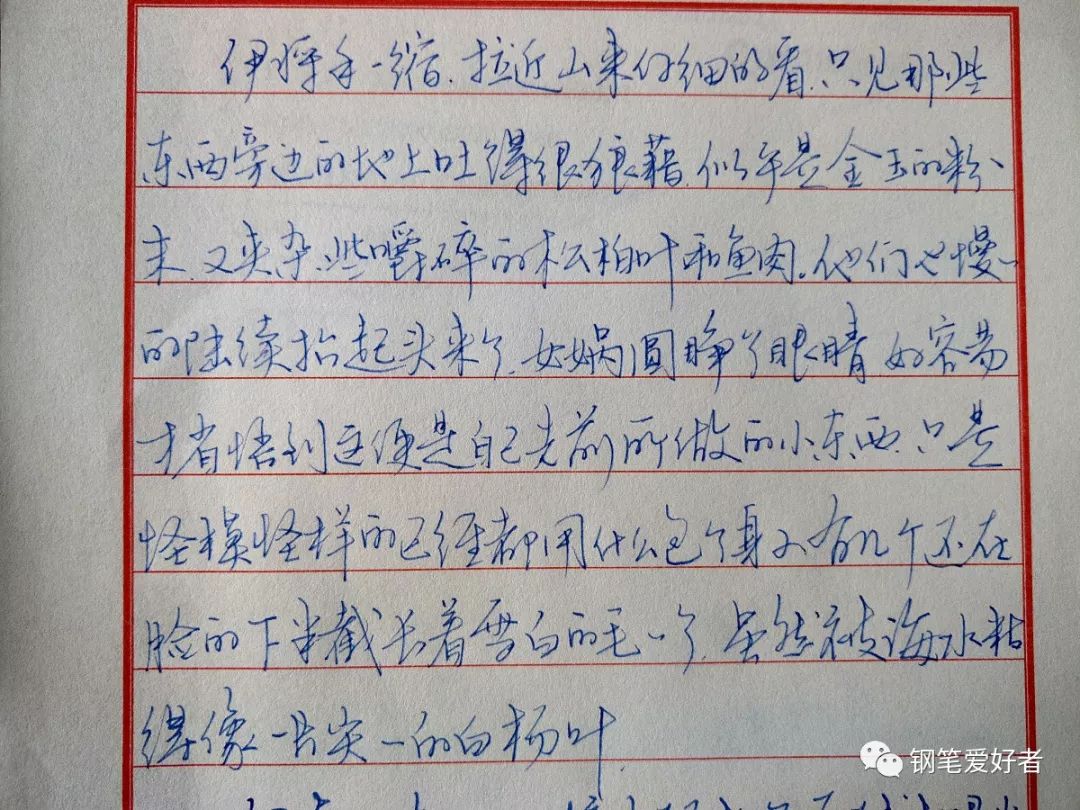 伊将手一缩,拉近山来仔细的看,只见那些
东西旁边的地上吐得很狼藉,似乎是金玉的粉
末,又夹杂些嚼碎的松柏叶和鱼肉。他们也慢慢
的陆续抬起头来了,女娲圆睁了眼睛,好容易
才省悟到这便是自己先前所做的小东西,只是
怪模怪样的已经都用什么包了身子,有几个还在
脸的下半截长着雪白的毛毛了,虽然被海水粘
得像一片尖尖的白杨叶.
钢笔爱好者